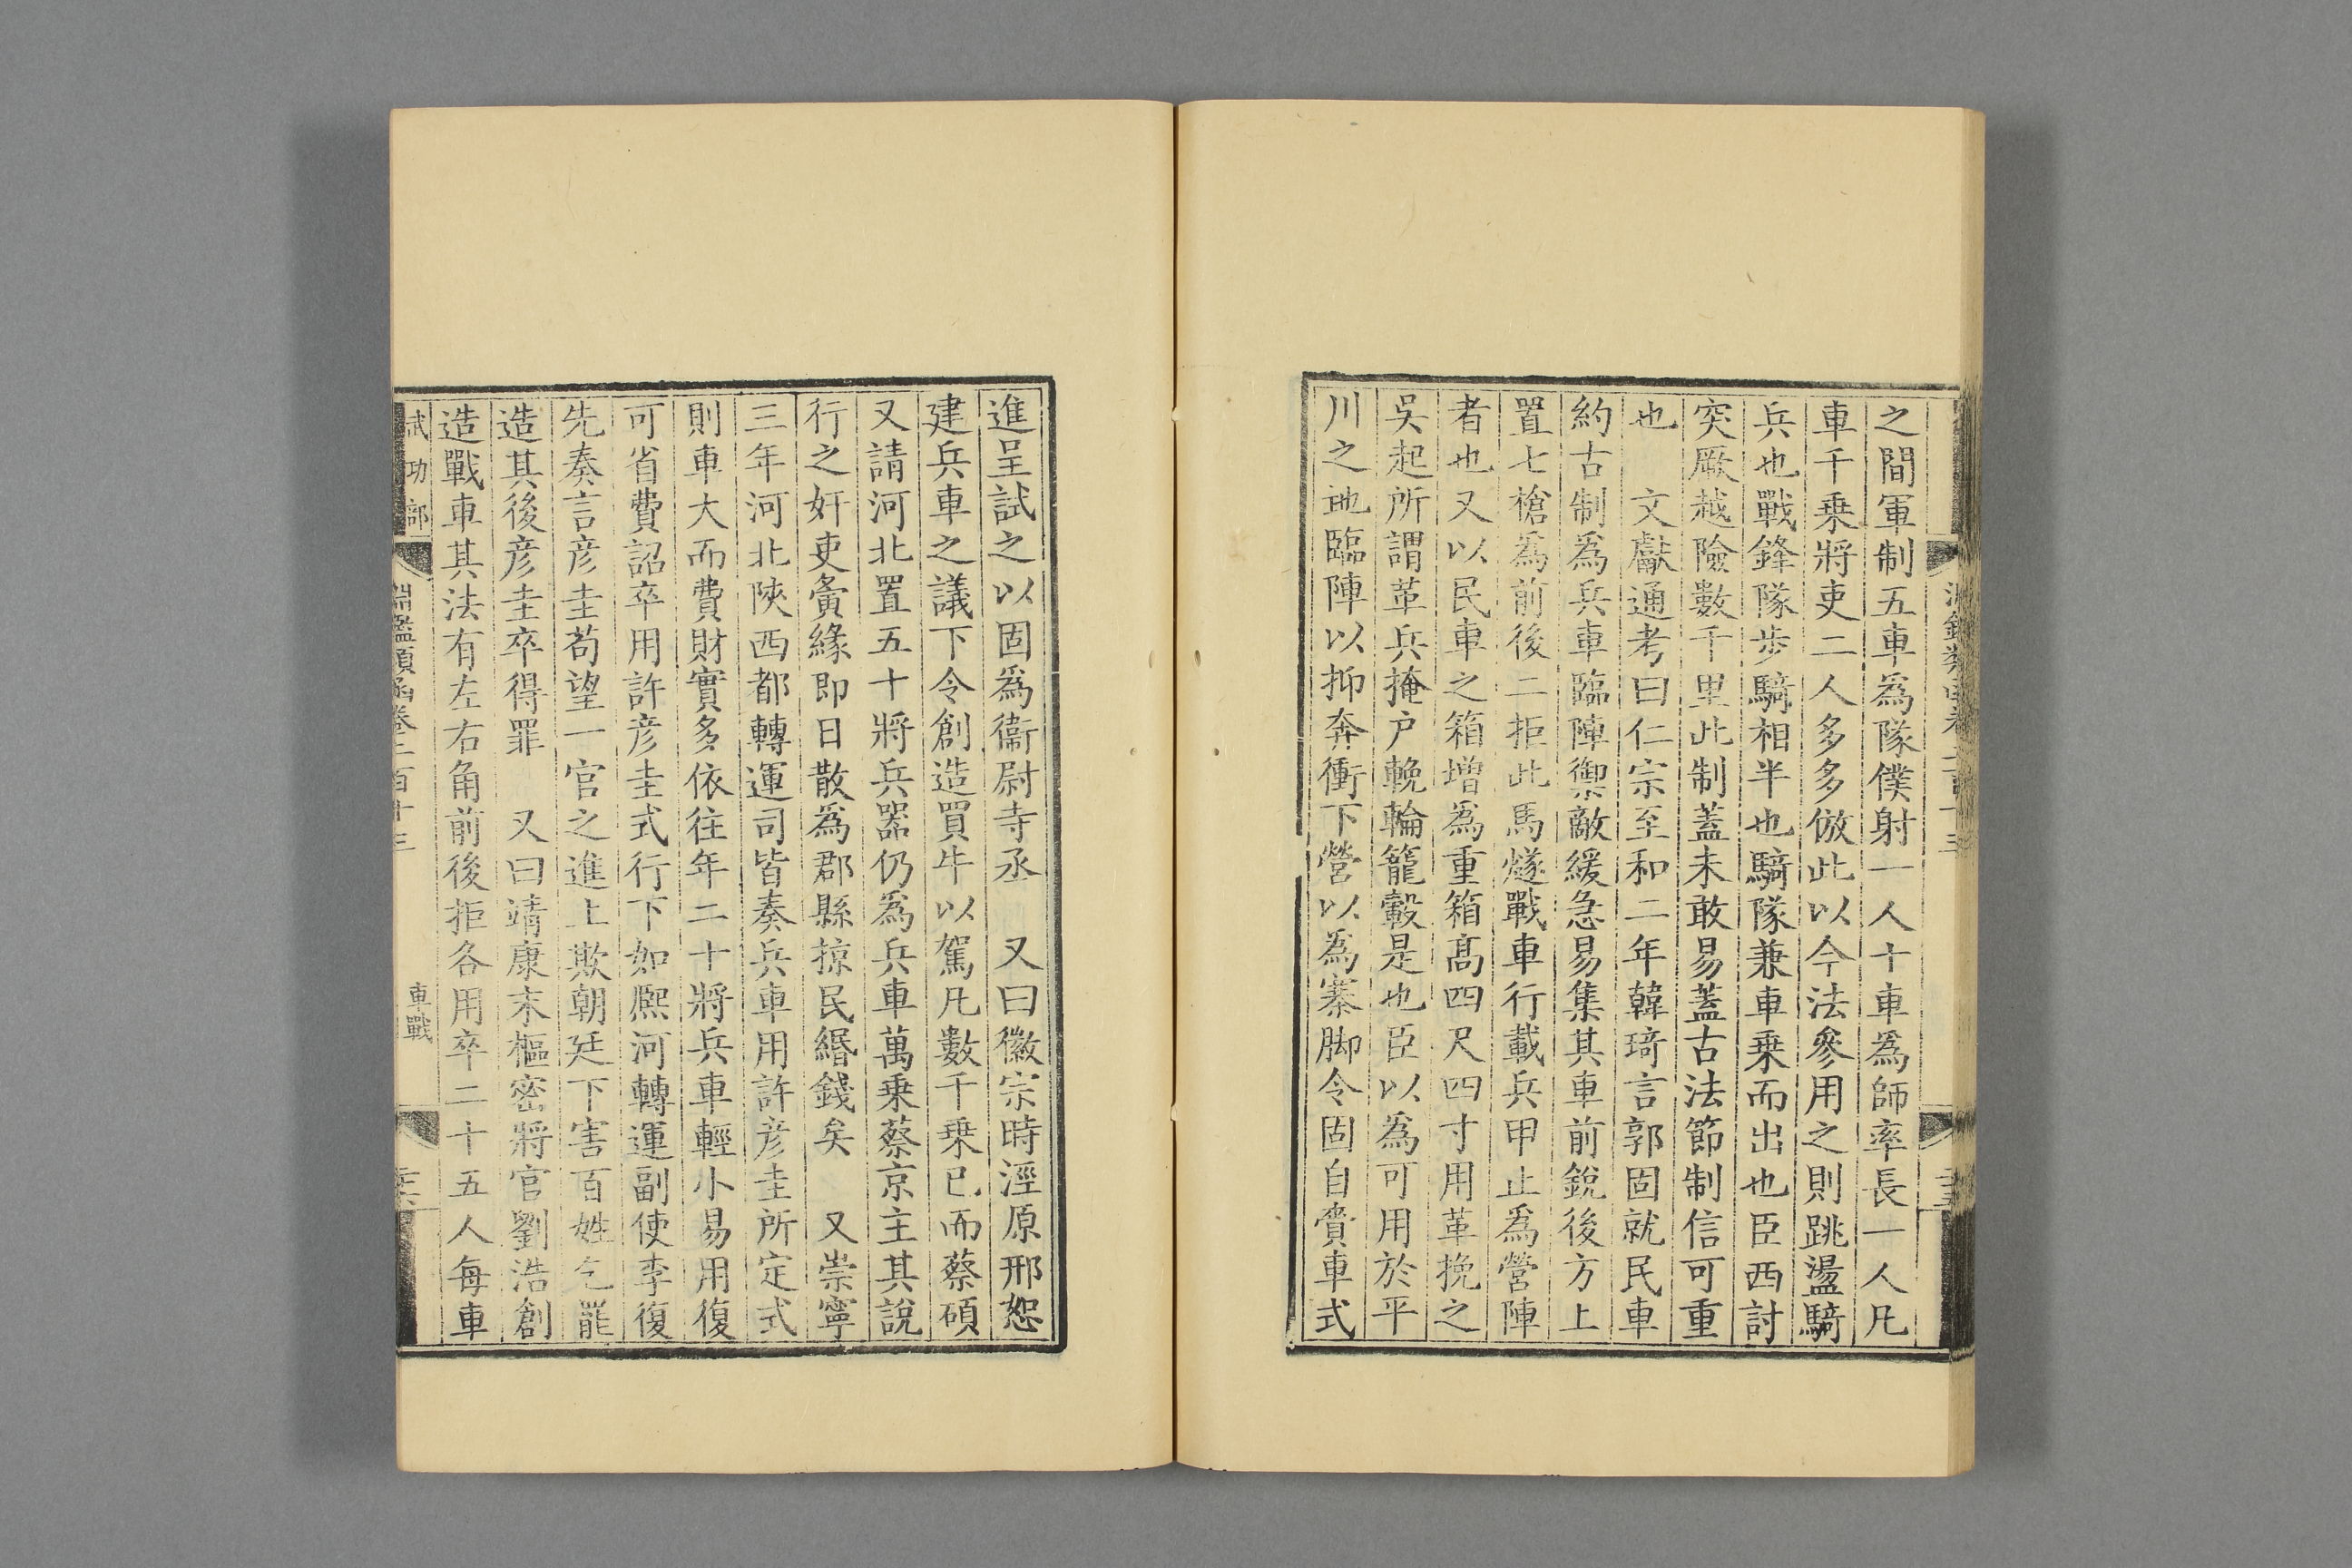 之間軍制五車為隊僕射一人十車為師率長一人凡
車千乗將吏二人多多倣此以今法參用之則跳盪騎
兵也戰鋒隊歩騎相半也騎隊兼車乗而出也臣西討
突厥越險數千里此制蓋未敢易蓋古法節制信可重
也　文獻通考曰仁宗至和二年韓琦言郭固就民車
約古制為兵車臨陣禦敵緩急易集其車前銳後方上
置七槍為前後二拒此馬燧戰車行載兵甲止為營陣
者也又以民車之箱增為重箱髙四尺四寸用革挽之
吳起所謂革兵掩户輓輪籠轂是也臣以為可用於平
川之地臨陣以抑奔衝下營以為寨脚令固自賫車式
進呈試之以固為衞尉寺丞　又曰徽宗時涇原邢恕
建兵車之議下令創造買牛以駕凡數千乗已而蔡碩
又請河北置五十將兵器仍為兵車萬乗蔡京主其說
行之奸吏夤緣即日散為郡縣掠民緡錢矣　又崇寧
三年河北陜西都轉運司皆奏兵車用許彦圭所定式
則車大而費財實多依往年二十將兵車輕小易用復
可省費詔卒用許彦圭式行下如熙河轉運副使李復
先奏言彦圭苟望一官之進上欺朝廷下害百姓乞罷
造其後彦圭卒得罪　又曰靖康末樞密將官劉浩創
造戰車其法有左右角前後拒各用卒二十五人每車
武功部　淵鑑類函卷二百十三　車戰